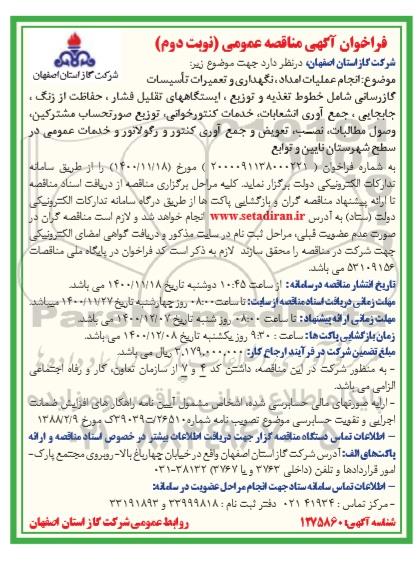 فراخوان آگهی مناقصه عمومی (نوبت دوم)
شرکت گاز استان اصفهان
شرکت گاز استان اصفهان، درنظر دارد جهت موضوع زیر:
موضوع: انجام عملیات امداد، نگهداری و تعمیرات تأسیسات
گازرسانی شامل خطوط تغذیه و توزیع ، ایستگاههای تقلیل فشار ، حفاظت از زنگ ،
جابجایی ، جمع آوری انشعابات، خدمات کنتورخوانی، توزیع صورتحساب مشترکین،
وصول مطالبات، نصب، تعویض و جمع آوری کنتور و رگولاتور و خدمات عمومی در
سطح شهرستان نایین و توابع
به شماره فراخوان ( ۲۰۰۰۰۹۱۱۳۸۰۰۰۲۲۱ ) مورخ (۱۴۰۰/۱۱/۱۸) را از طریق سامانه
تدارکات الکترونیکی دولت برگزار نماید. کلیه مراحل برگزاری مناقصه از دریافت اسناد مناقصه
تا ارائه پیشنهاد مناقصه گران و بازگشایی پاکت ها از طریق درگاه سامانه تدارکات الکترونیکی
دولت (ستاد) به آدرس www.setadiran.ir انجام خواهد شد و لازم است مناقصه گران در
صورت عدم عضویت قبلی، مراحل ثبت نام در سایت مذکور و دریافت گواهی امضای الکترونیکی
جهت شرکت در مناقصه را محقق سازند لازم به ذکر است کد فراخوان در پایگاه ملی مناقصات
۵۳۱۰۹۱۵۴ می باشد.
تاریخ انتشار مناقصه در سامانه: از ساعت ۱۰:۴۵ دوشنبه تاریخ ۱۴۰۰/۱۱/۱۸ می باشد.
مهلت زمانی دریافت اسناد مناقصه از سایت: تا ساعت ۰۸:۰۰ روز چهارشنبه تاریخ ۱۴۰۰/۱۱/۲۷ میباشد
مهلت زمانی ارائه پیشنهاد: تا ساعت ۰۸:۰۰ روز شنبه تاریخ ۱۴۰۰/۱۲/۰۷ می باشد.
زمان بازگشایی پاکت ها : ساعت ۹:۳۰ روز یکشنبه تاریخ ۱۴۰۰/۱۲/۰۸ می باشد.
مبلغ تضمین شرکت در فرآیند ارجاع کار: ۳،۱۷۹،۰۰۰،۰۰۰ ریال می باشد.
- به منظور شرکت در این مناقصه، داشتن کد ۴ و ۷ از سازمان تعاون، کار و رفاه اجتماعی
الزامی می باشد.
- ارایه صورتهای مالی حسابرسی شده، اشخاص مشمول آیین نامه راهکار های افزایش ضمانت
اجرایی و تقویت حسابرسی موضوع تصویب نامه شماره ۲۶۵۱۰ت۳۹۰۳۹ک مورخ ۱۳۸۸/۲/۹
- اطلاعات تماس دستگاه مناقصه گزار جهت دریافت اطلاعات بیشتر در خصوص اسناد مناقصه و ارائه
پاکت های الف: آدرس شرکت گاز استان اصفهان واقع در خیابان چهارباغ بالا- روبروی مجتمع پارک-
امور قراردادها و تلفن (داخلی ۳۷۶۳ و یا ۳۷۶۷) ۳۸۱۳۲-۰۳۱
- اطلاعات تماس سامانه ستاد جهت انجام مراحل عضویت در سامانه:
- مرکز تماس : ۴۱۹۳۴ ۰۲۱ دفتر ثبت نام : ۳۳۹۹۹۸۱۸ و ۳۳۱۹۱۸۹۳
شناسه آگهی: ۱۲۷۵۸۶۰ روابط عمومی شرکت گاز استان اصفهان